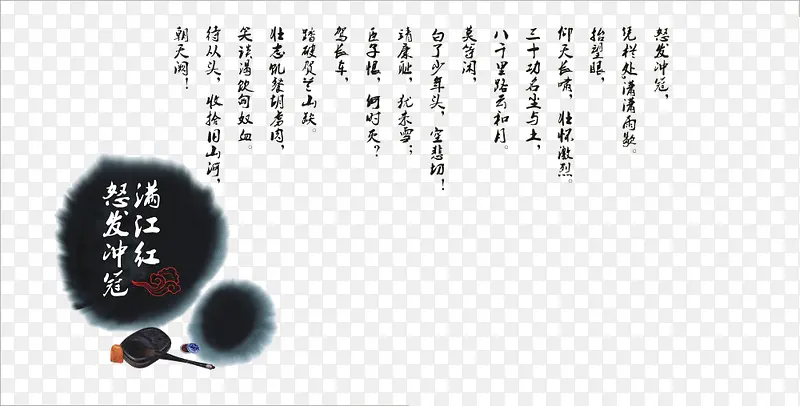 怒发冲冠，
凭栏处潇潇雨歇。
抬望眼，
仰天长啸，壮怀激烈。
三十功名尘与土，
八千里路云和月。
莫等闲，
白了少年头，空悲切！
靖康耻，犹未雪；
臣子恨，何时灭？
驾长车，
踏破贺兰山缺。
壮志饥餐胡虏肉，
笑谈渴饮匈奴血。
待从头，收拾旧山河，
朝天阙！
满江红
怒发冲冠